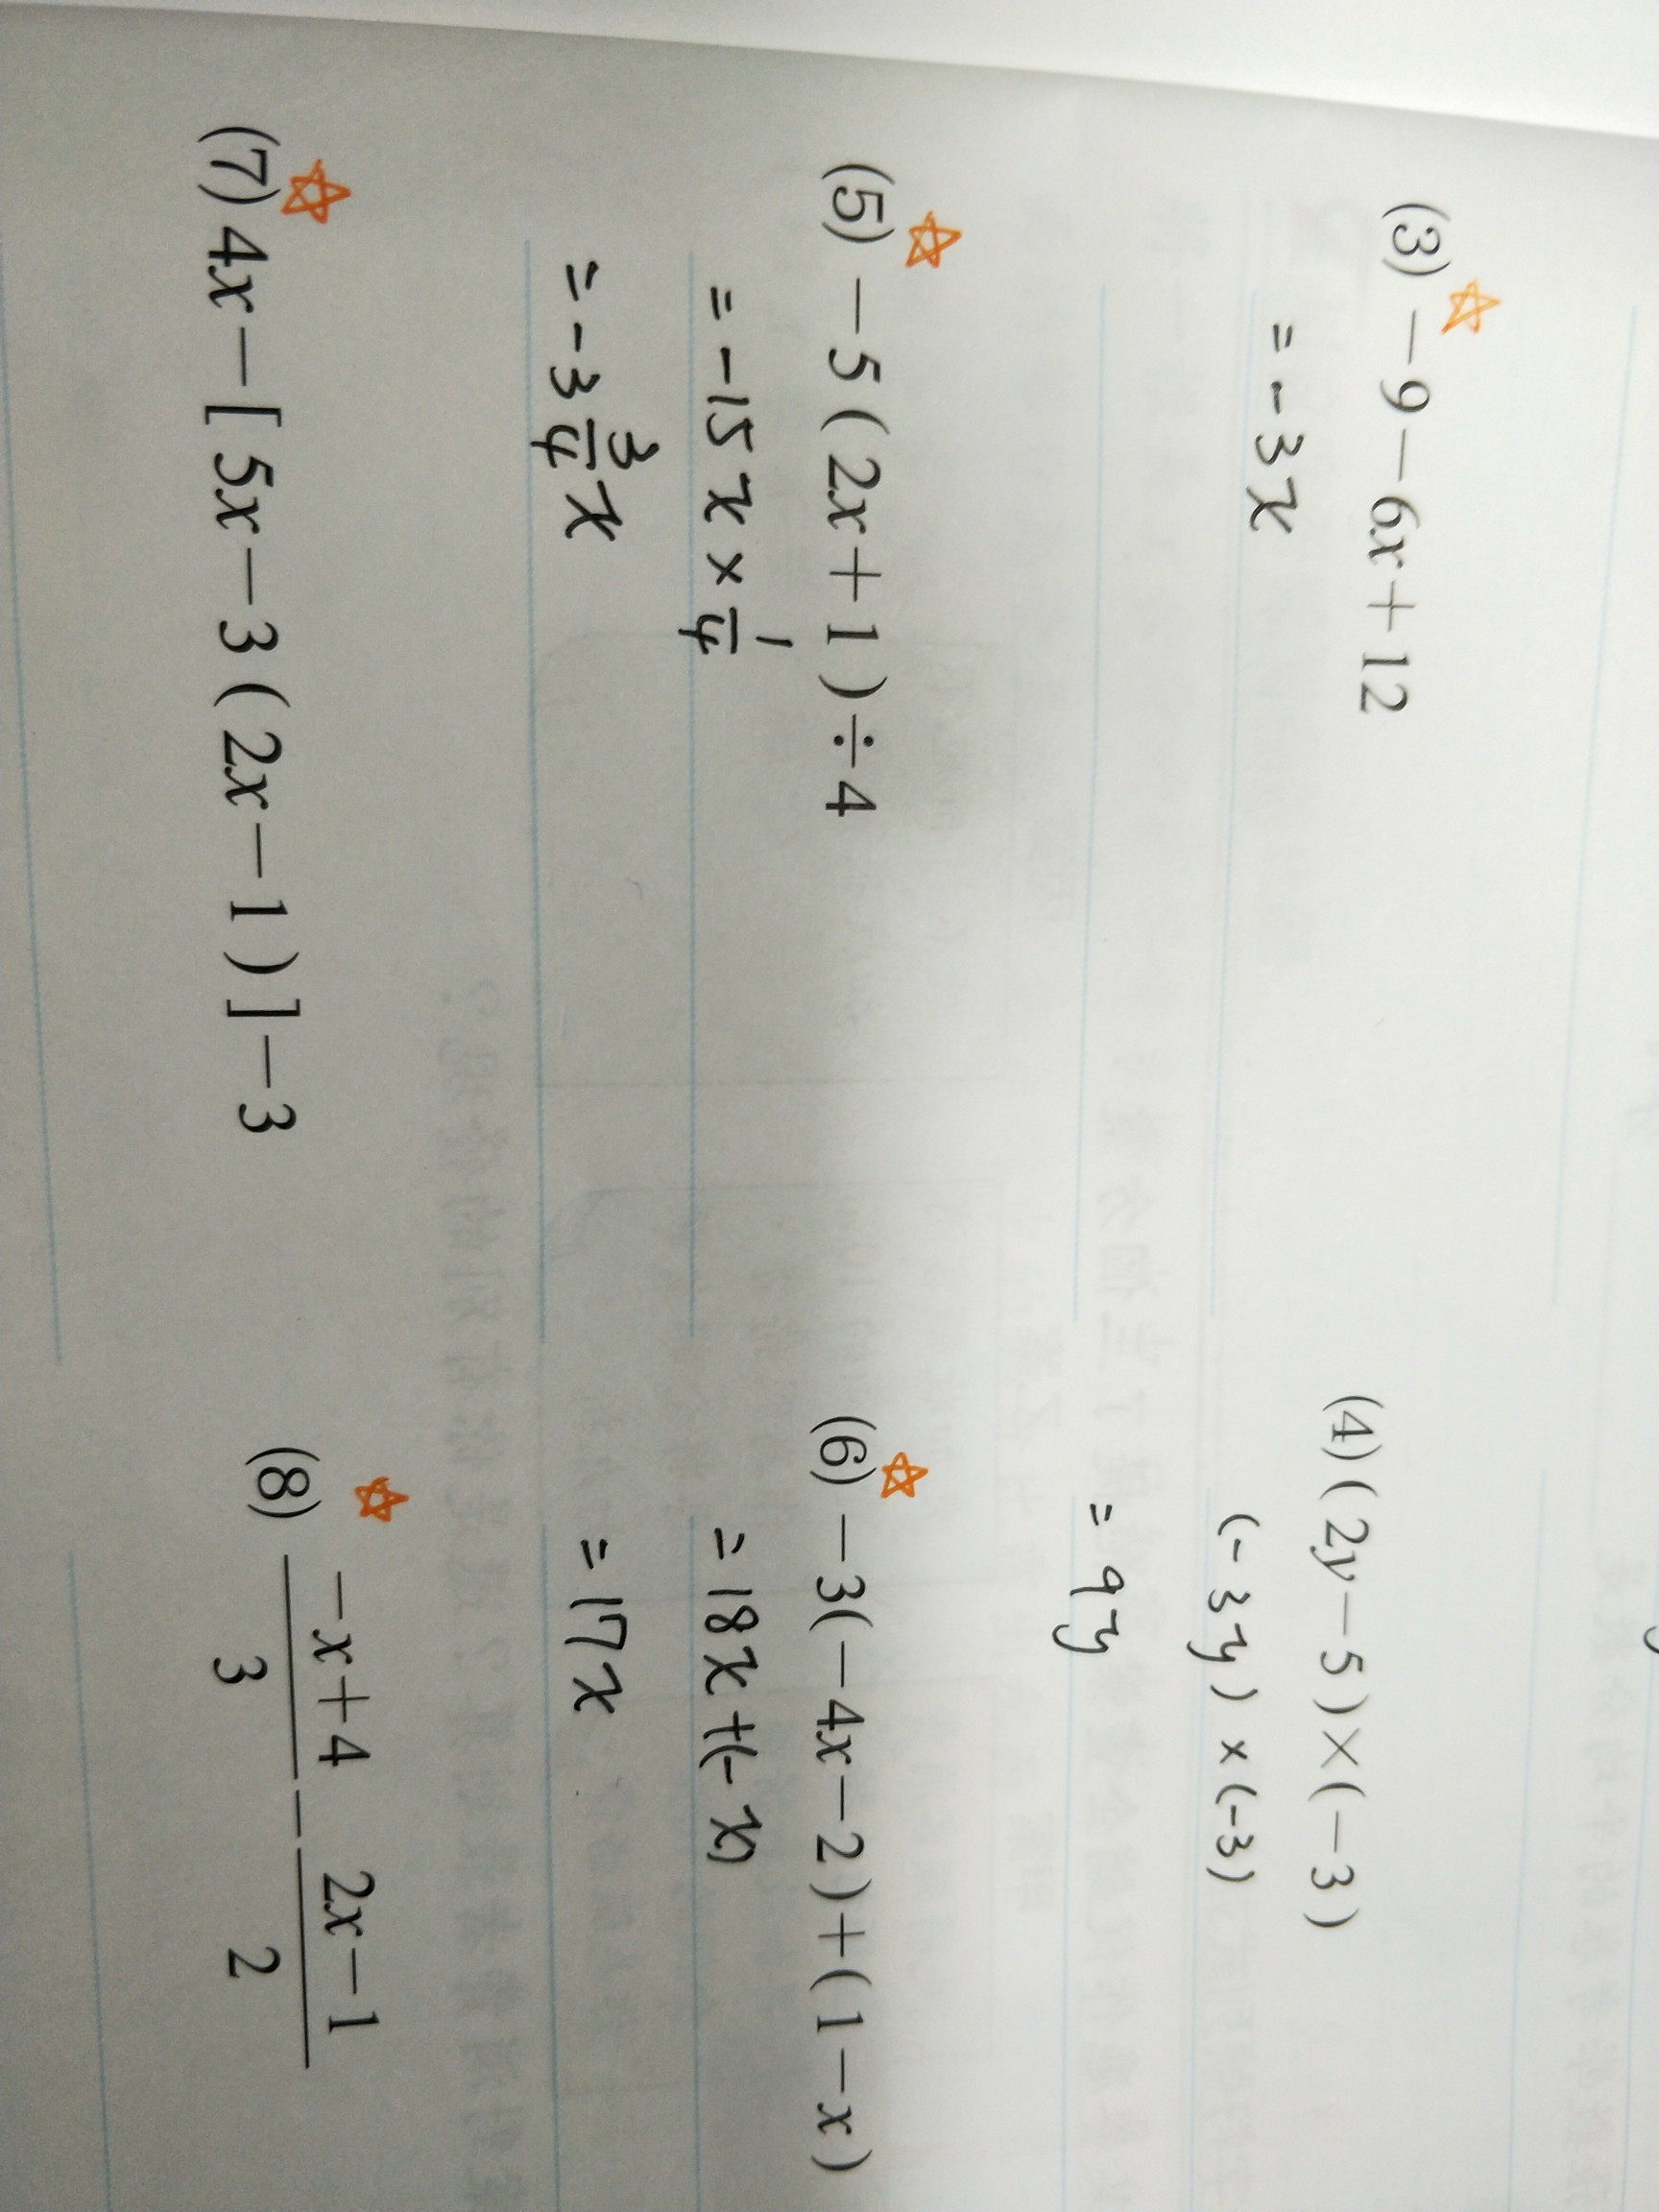 (3) −9−6x+12
= -3x
(4) (2y−5)×(−3)
(-3y)×(-3)
= 9y
(5) −5(2x+1)÷4
= -15x × 1/4
= -3 3/4 x
(6) −3(−4x−2)+(1−x)
= 18x+(-x)
= 17x
(7) 4x−[5x−3(2x−1)]−3
(8) (−x+4)/3 − (2x−1)/2